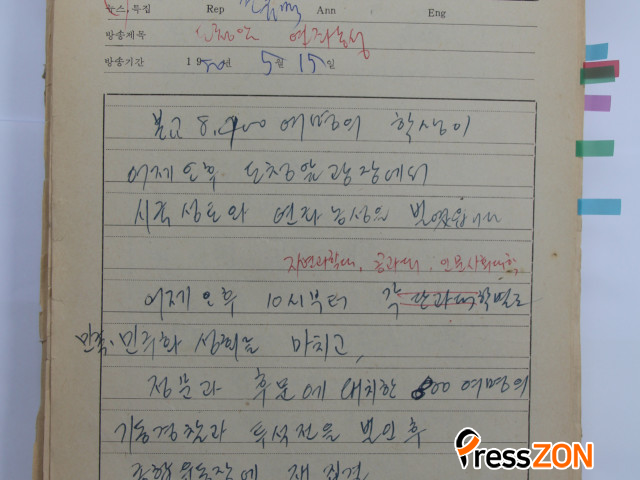 뉴스, 특집 Rep Ann Eng
방송제목 도청앞 연좌농성
방송기간 1980년 5월 15일
본교 8,400 여명의 학생이
어제 오후 도청앞 광장에서
시국 성토와 연좌농성을 벌였읍니다
자연과학대, 공과대, 인문사회대학
어제 오후 10시부터 각 단과대학별로
민족·민주화 성회를 마치고,
정문과 후문에 대치한 800 여명의
기동경찰과 투석전을 벌인 후
종합운동장에 재 집결
PressZON